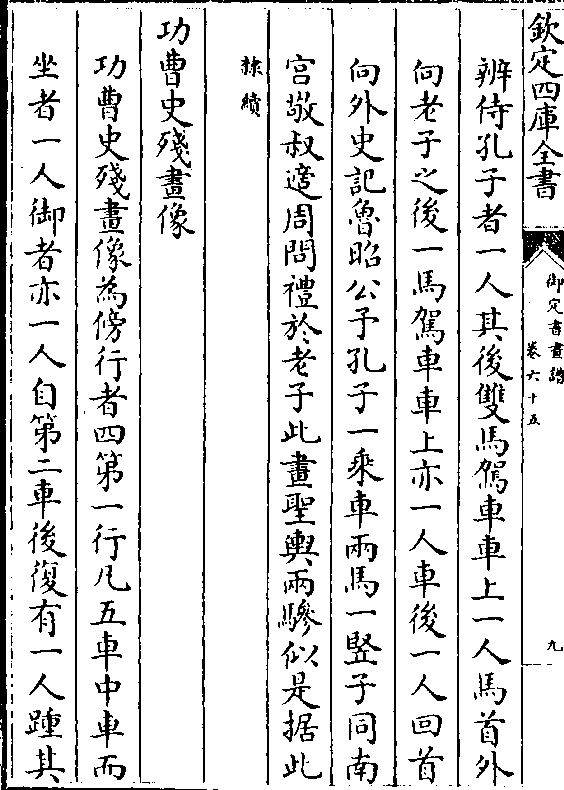 欽定四庫全書
御定書畫譜
卷六十五
九
辨侍孔子者一人其後雙馬駕車車上一人馬首外
向老子之後一馬駕車車上亦一人車後一人回首
向外史記魯昭公予孔子一乘車兩馬一竪子同南
宫敬叔適周問禮於老子此畫聖輿兩驂似是据此
隸續
功曹史殘畫像
功曹史殘畫像為傍行者四第一行凡五車中車而
坐者一人御者亦一人自第二車後復有一人踵其